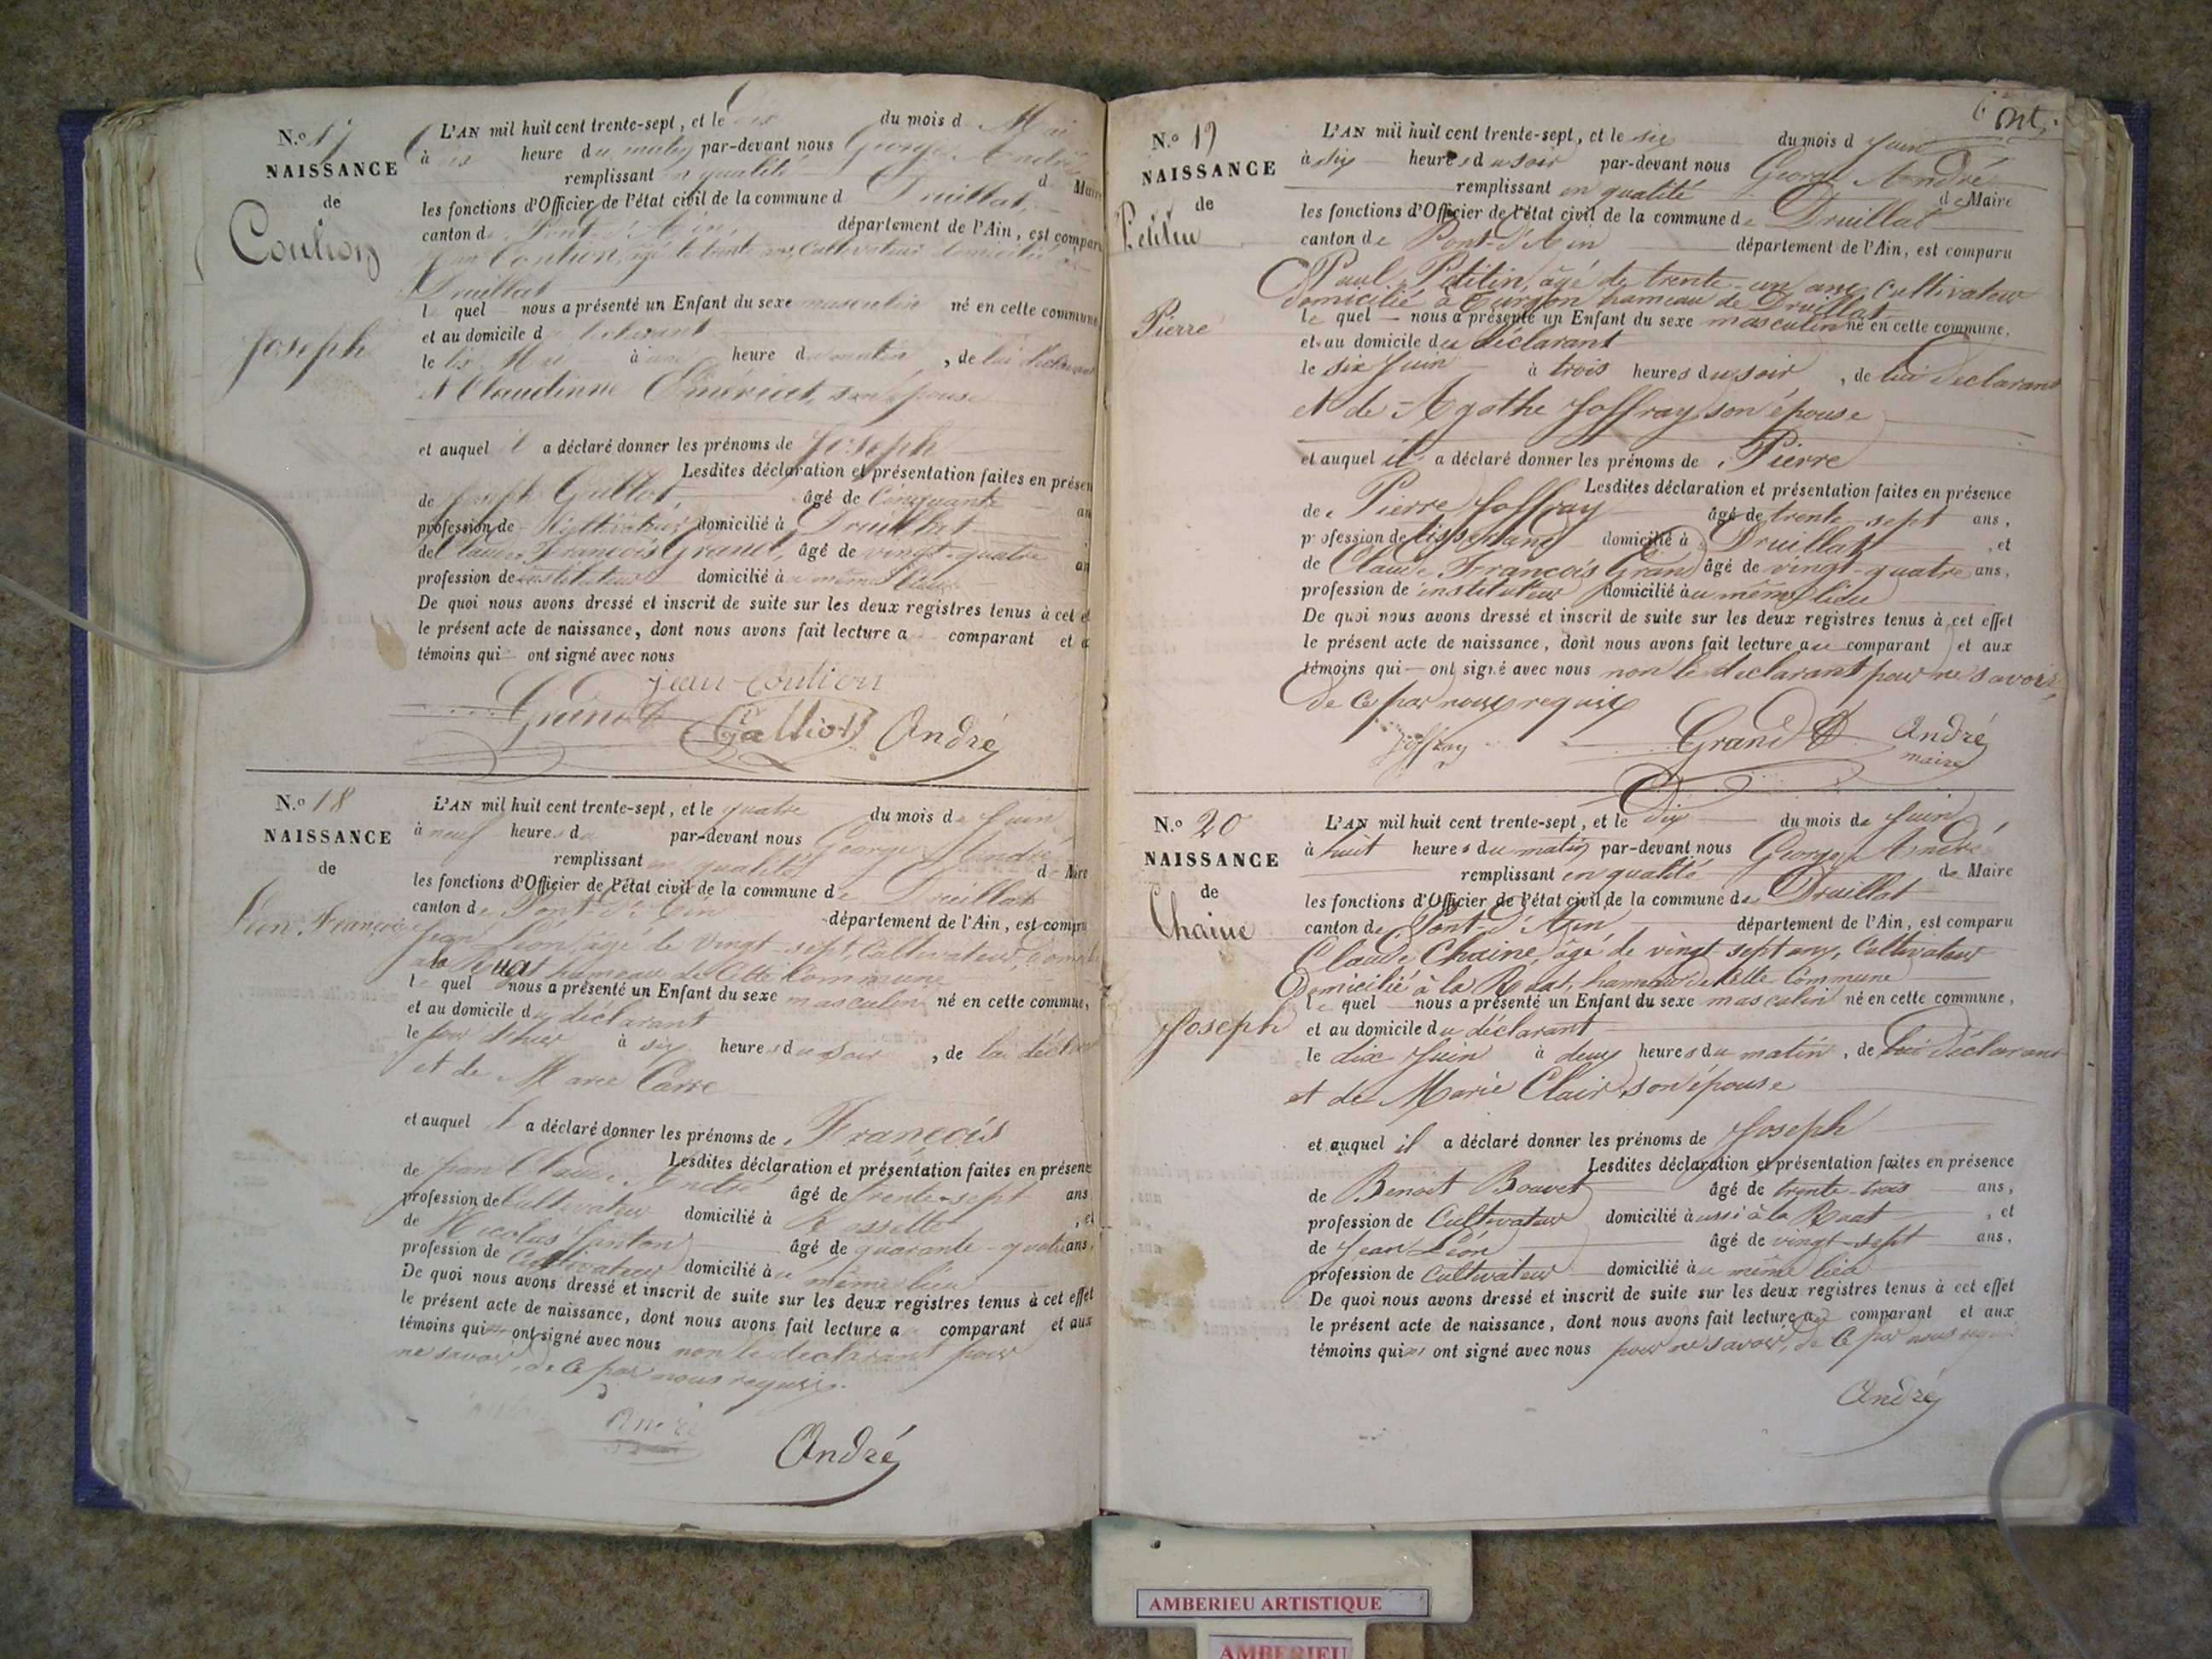 N.o 17
NAISSANCE
de
Coulion
Joseph
L'AN mil huit cent trente-sept, et le dix du mois d Mai
à heure du matin par-devant nous George André
remplissant en qualité d Maire
les fonctions d'Officier de l'état civil de la commune d Druillat
canton de Pont d'Ain, département de l'Ain, est comparu
Jean Coulion, âgé de trente ans, Cultivateur domicilié à
Druillat
lequel nous a présenté un Enfant du sexe masculin né en cette commune
et au domicile d déclarant
le dix Mai à une heure du matin, de lui déclarant
et Claudinne Emériat, son épouse
et auquel il a déclaré donner les prénoms de Joseph
Lesdites déclaration et présentation faites en présen
de Joseph âgé de Cinquante an
profession de domicilié à Druillat
de Claude François Grand, âgé de vingt-quatre an
profession de instituteur domicilié à même lieu
De quoi nous avons dressé et inscrit de suite sur les deux registres tenus à cet e
le présent acte de naissance, dont nous avons fait lecture a comparant et a
témoins qui ont signé avec nous
Jean Coulion
André
N.o 18
NAISSANCE
de
Léon François
L'AN mil huit cent trente-sept, et le quatre du mois de Juin
à neuf heures du par-devant nous George André
remplissant en qualité de Maire
les fonctions d'Officier de l'état civil de la commune de Druillat
canton de Pont-d'Ain département de l'Ain, est comparu
Jean Léon, âgé de vingt-sept, Cultivateur, domicilié
à la Ruat hameau de Cette Commune
lequel nous a présenté un Enfant du sexe masculin né en cette commune,
et au domicile du déclarant
le jour d'hier à six heures du soir, de lui déclarant
et de Marie Carre
et auquel il a déclaré donner les prénoms de François
Lesdites déclaration et présentation faites en présence
de Jean Claude André âgé de trente-sept ans
profession de Cultivateur domicilié à Rossette, et
de Nicolas Janton âgé de quarante-quatre ans,
profession de Cultivateur domicilié au même lieu
De quoi nous avons dressé et inscrit de suite sur les deux registres tenus à cet effet
le présent acte de naissance, dont nous avons fait lecture a comparant et aux
témoins qui ont signé avec nous non le déclarant pour
ne savoir, de ce par nous requis.
André
André
N.o 19
NAISSANCE
de
Petitin
Pierre
L'AN mil huit cent trente-sept, et le six du mois d Juin
à six heures du soir par-devant nous George André
remplissant en qualité de Maire
les fonctions d'Officier de l'état civil de la commune de Druillat
canton de Pont-d'Ain département de l'Ain, est comparu
Paul Petitin, âgé de trente-un ans, Cultivateur
domicilié à Turgon hameau de Druillat
lequel nous a présenté un Enfant du sexe masculin né en cette commune,
et au domicile du déclarant
le six Juin à trois heures du soir, de lui déclarant
et de Agathe Joffray, son épouse
et auquel il a déclaré donner les prénoms de Pierre
Lesdites déclaration et présentation faites en présence
de Pierre Joffray âgé de trente-sept ans,
profession de tisserand domicilié à Druillat, et
de Claude François Grand âgé de vingt-quatre ans,
profession de instituteur domicilié au même lieu
De quoi nous avons dressé et inscrit de suite sur les deux registres tenus à cet effet
le présent acte de naissance, dont nous avons fait lecture au comparant et aux
témoins qui ont signé avec nous non le déclarant pour ne savoir,
de ce par nous requis
Joffray Grand André
maire
N.o 20
NAISSANCE
de
Chaine
Joseph
L'AN mil huit cent trente-sept, et le Dix du mois de Juin
à huit heures du matin par-devant nous George André
remplissant en qualité de Maire
les fonctions d'Officier de l'état civil de la commune de Druillat
canton de Pont-d'Ain département de l'Ain, est comparu
Claude Chaine, âgé de vingt sept ans, Cultivateur
Domicilié à la Ruat, hameau de Cette Commune
lequel nous a présenté un Enfant du sexe masculin né en cette commune,
et au domicile du déclarant
le dix Juin à deux heures du matin, de lui déclarant
et de Marie Clair, son épouse
et auquel il a déclaré donner les prénoms de Joseph
Lesdites déclaration et présentation faites en présence
de Benoit Bouvet âgé de trente-trois ans,
profession de Cultivateur domicilié aussi à la Ruat, et
de Jean Léon âgé de vingt-sept ans,
profession de Cultivateur domicilié au même lieu
De quoi nous avons dressé et inscrit de suite sur les deux registres tenus à cet effet
le présent acte de naissance, dont nous avons fait lecture au comparant et aux
témoins qui ont signé avec nous pour ne savoir, de ce par nous requis
André
AMBERIEU ARTISTIQUE
AMBERIEU